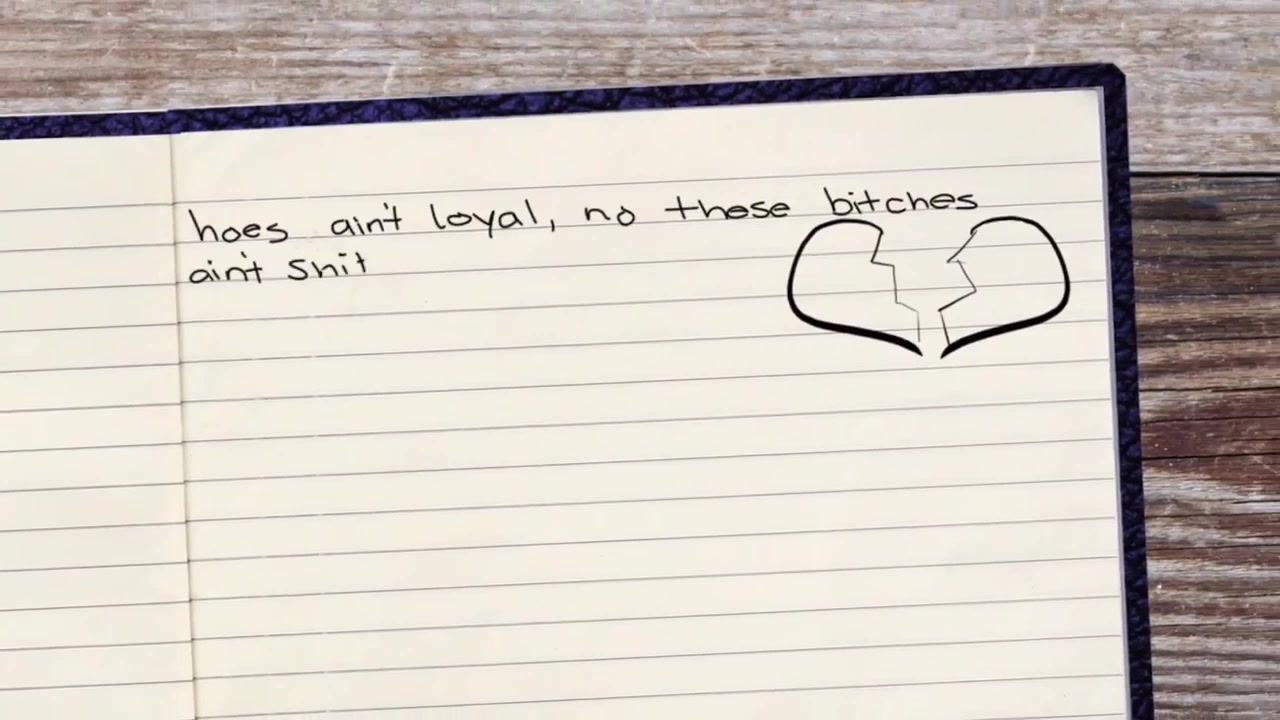 hoes ain't loyal, no these bitches
ain't shit